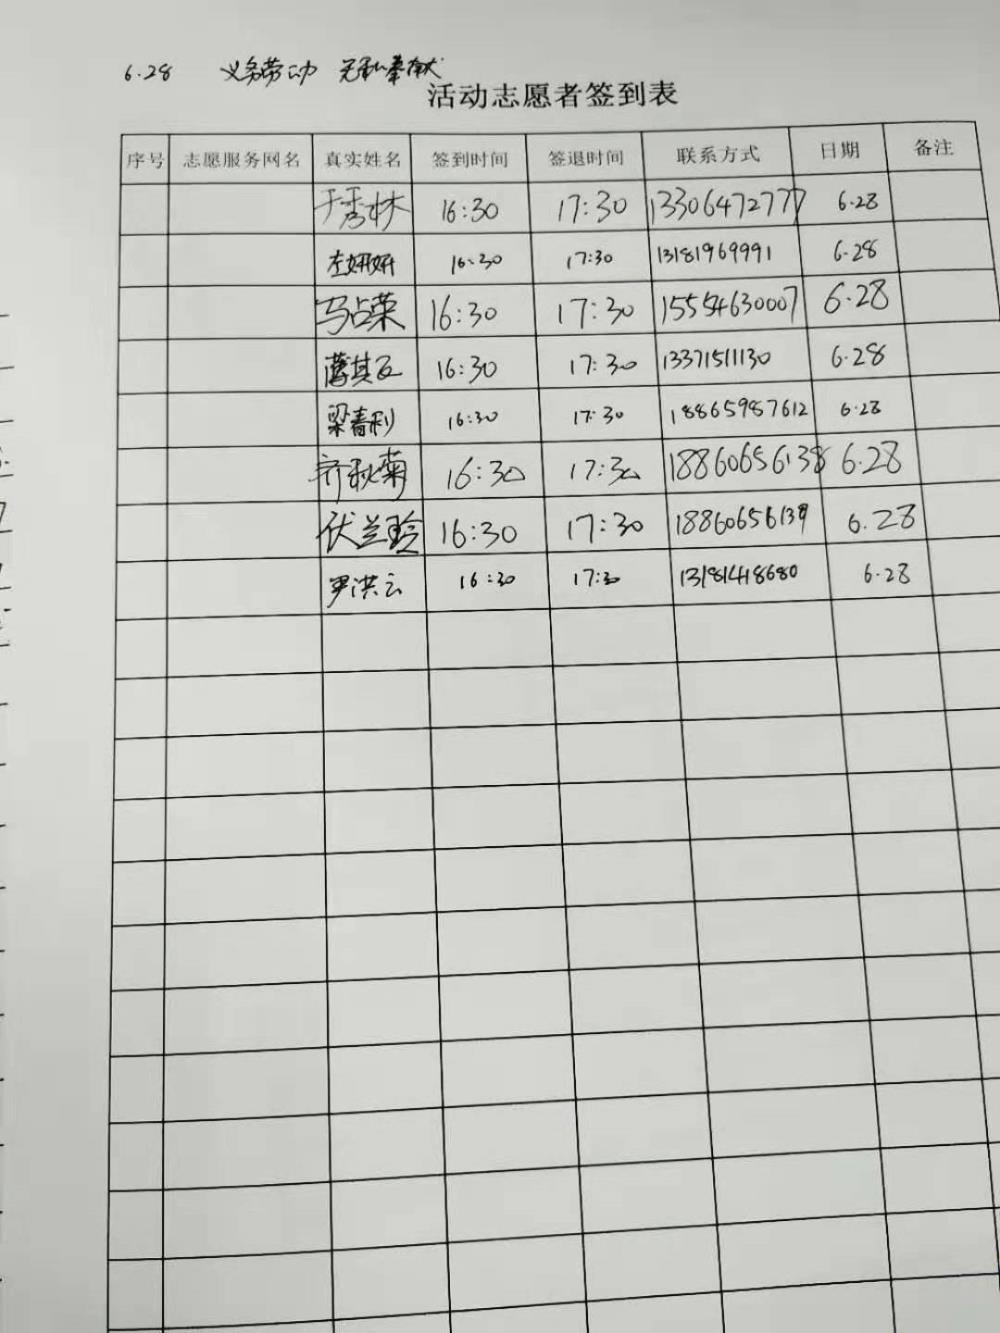 6.28 义务劳动 无私奉献
活动志愿者签到表
序号 志愿服务网名 真实姓名 签到时间 签退时间 联系方式 日期 备注
于秀林 16:30 17:30 13306472777 6.28
左妍妍 16:30 17:30 13181969991 6.28
马占荣 16:30 17:30 15554630007 6.28
16:30 17:30 13371511130 6.28
梁春利 16:30 17:30 18865987612 6.28
齐秋菊 16:30 17:30 18860656138 6.28
伏兰玲 16:30 17:30 18860656139 6.28
尹洪云 16:30 17:30 13181418680 6.28